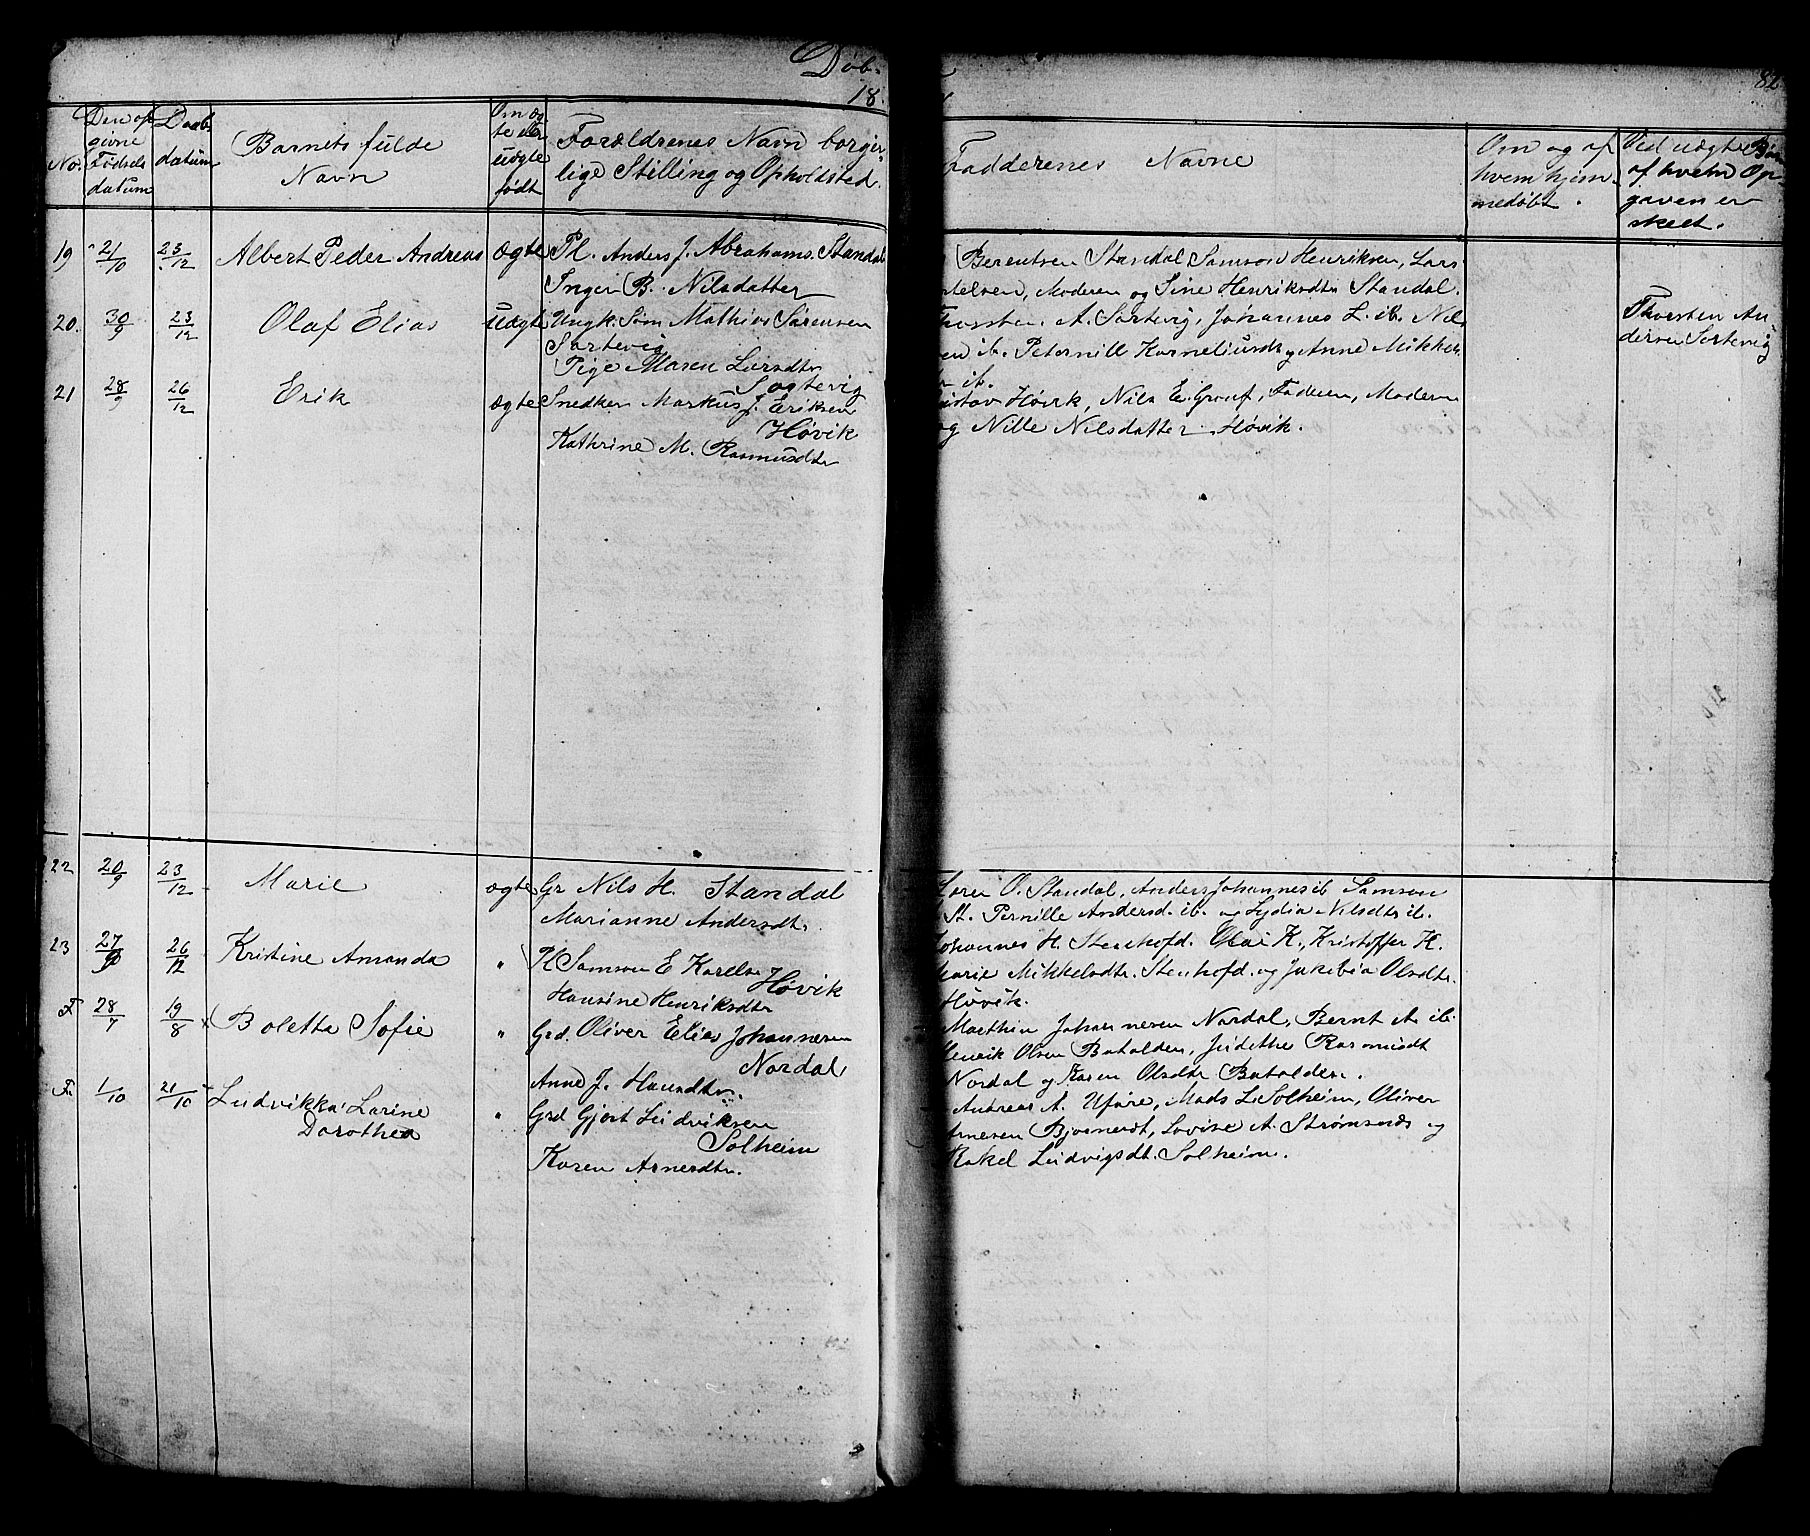 Døb-
18
82
No.
Den op
givne
Fødsels
datum
Daabs
datum
Barnets fulde
Navn
Om æg
te eller
uægte
født
Forældrenes Navn borger
lige Stilling og Opholdsted.
Fadderenes Navne
Om og af
hvem hjem
medøbt.
Ved uægte Børn
af hvem Op-
given er
skeet.
19 21/10 23/12 Albert Peder Andreas ægte Pl. Anders J. Abrahams. Standal
Inger B. Nilsdatter
Berentsen Standal Samson Henriksen, Lars
telsen, Moderen og Sine Henriksdtr Standal.
20. 30/9 23/12 Olaf Elias uægte Ungk. Søm Mathias Sørensen
Sortevig
Pige Maren Larsdtr
Sortevig
A. Sortevig, Johannes L. ib. Nil
en ib. Peternill Korneliusdt og Anne Mikkels
ib.
Thorsten An
dersen Sortevig
21 28/9 26/12 Erik ægte Snedker Markus J. Eriksen
Høvik
Kathrine M. Rasmusdtr
Høvik, Nils E. Grouf, Faderen, Moderen
og Nille Nilsdatter Høvik.
22 20/9 23/12 Marie ægte Gr Nils H. Standal
Marianne Andersdt.
O. Standal, Anders Johannes ib Samson
St. Pernille Andersd. ib. og Lydia Nilsdtr ib.
23 27/9 26/12 Kristine Amanda " H Samson E Karels
Høvik
Hansine Henriksdtr
Johannes H. Stenhofd. K., Kristoffer K.
Marie Mikkelsdtr. Stenhofd. og Jakobia Olsdtr.
Høvik.
F 28/7 19/8 x Boletta Sofie " Grd. Oliver Elias Johannesen
Nordal
Anne J. Hansdtr.
Marthin Johannesen Nordal, Bernt A. ib.
Henrik Olsen Batalden, Judithe Rasmusdt
Nordal og Karen Olsdtr Batalden.
F. 1/10 21/10 Ludvikka Larine
Dorothea " Grd Gjert Ludviksen
Solheim
Karen Arnesdtr.
Andreas A. Uføre, Mads L. Solheim, Oliver
Arnesen Bjørnerdt, Lovise A. Strømsnæs og
Rakel Ludvigsdt. Solheim.